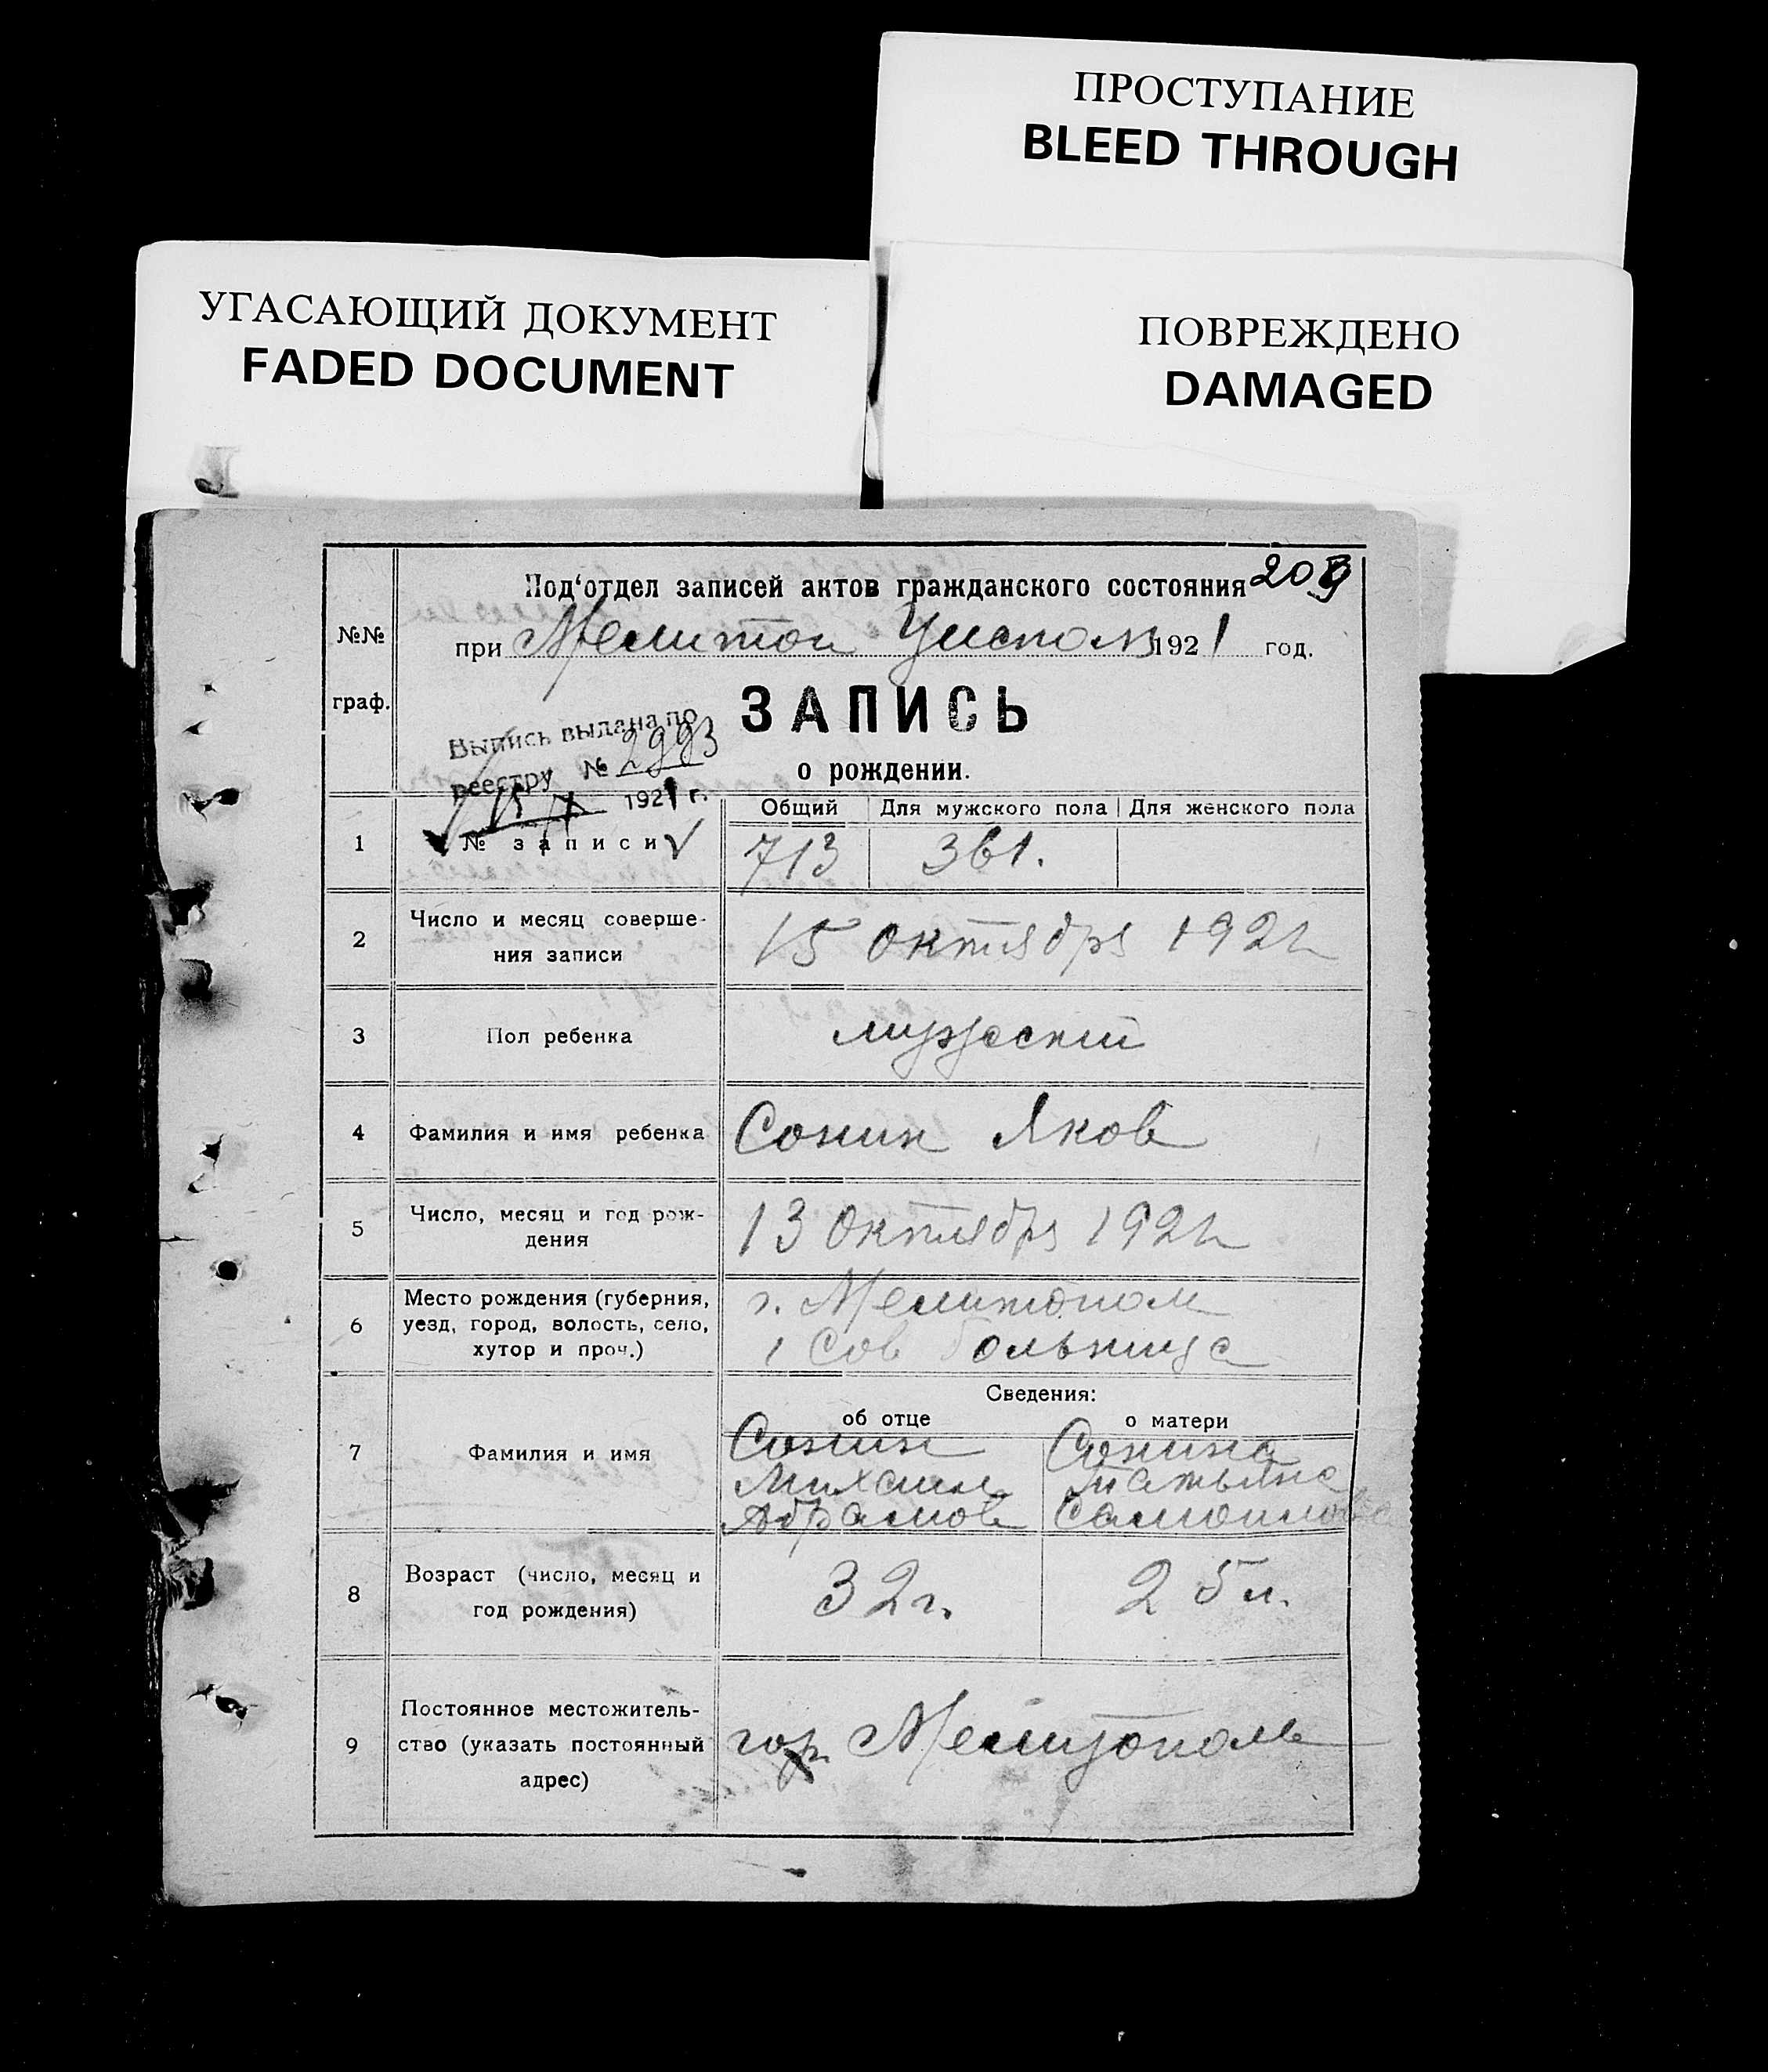 ПРОСТУПАНИЕ
BLEED THROUGH
УГАСАЮЩИЙ ДОКУМЕНТ
FADED DOCUMENT
ПОВРЕЖДЕНО
DAMAGED
209
Под‘отдел записей актов гражданского состояния
№№
граф.
при Мелитоп Уисполк 1921 год.
Выпись выдана по
реестру № 2993
15/X 1921 г.
ЗАПИСЬ
о рождении.
Общий Для мужского пола Для женского пола
1 № записи 713 361.
2 Число и месяц соверше-
ния записи
15 октября 1921
3 Пол ребенка мужский
4 Фамилия и имя ребенка Сонин Яков
5 Число, месяц и год рож-
дения
13 октября 1921
6 Место рождения (губерния,
уезд, город, волость, село,
хутор и проч.)
г. Мелитополь
1 Сов больница
Сведения:
об отце о матери
7 Фамилия и имя
Сонин
Михаил
Абрамов
Сонина
Татьяна
Самойлова
8 Возраст (число, месяц и
год рождения)
32 г. 25 л.
9 Постоянное местожитель-
ство (указать постоянный
адрес)
гор. Мелитополь